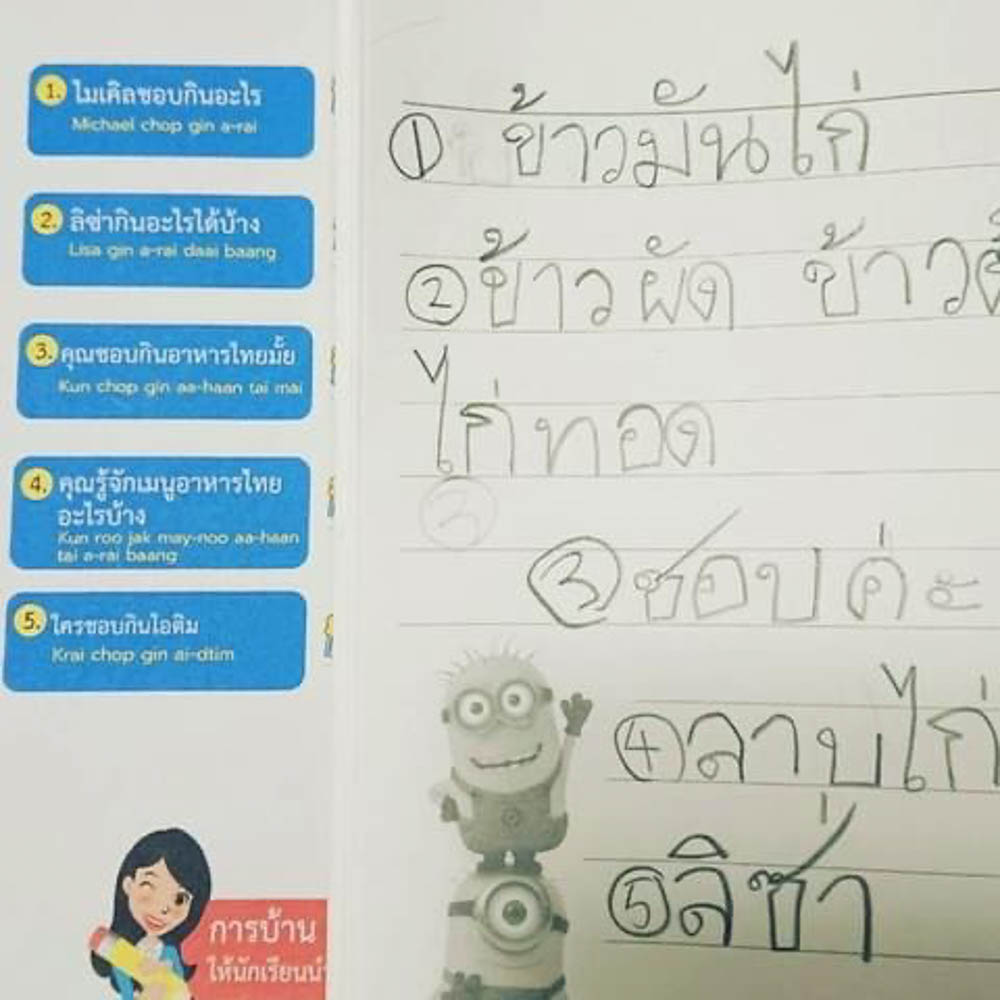 1. ไมเคิลชอบกินอะไร
Michael chop gin a-rai
2. ลิซ่ากินอะไรได้บ้าง
Lisa gin a-rai daai baang
3. คุณชอบกินอาหารไทยมั้ย
Kun chop gin aa-haan tai mai
4. คุณรู้จักเมนูอาหารไทย
อะไรบ้าง
Kun roo jak may-noo aa-haan
tai a-rai baang
5. ใครชอบกินไอติม
Krai chop gin ai-dtim
การบ้าน
ให้นักเรียน
① ข้าวมันไก่
② ข้าวผัด ข้าว
ไก่ทอด
③ ชอบค่ะ
④ ลาบไก่
⑤ ลิซ่า